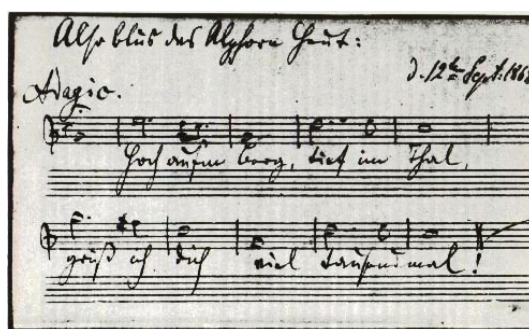 Also blus das Alphorn heut:
d. 12te Sept: 186
Adagio.
Hoch auf'm Berg, tief im Thal,
grüß ich dich viel tausendmal!